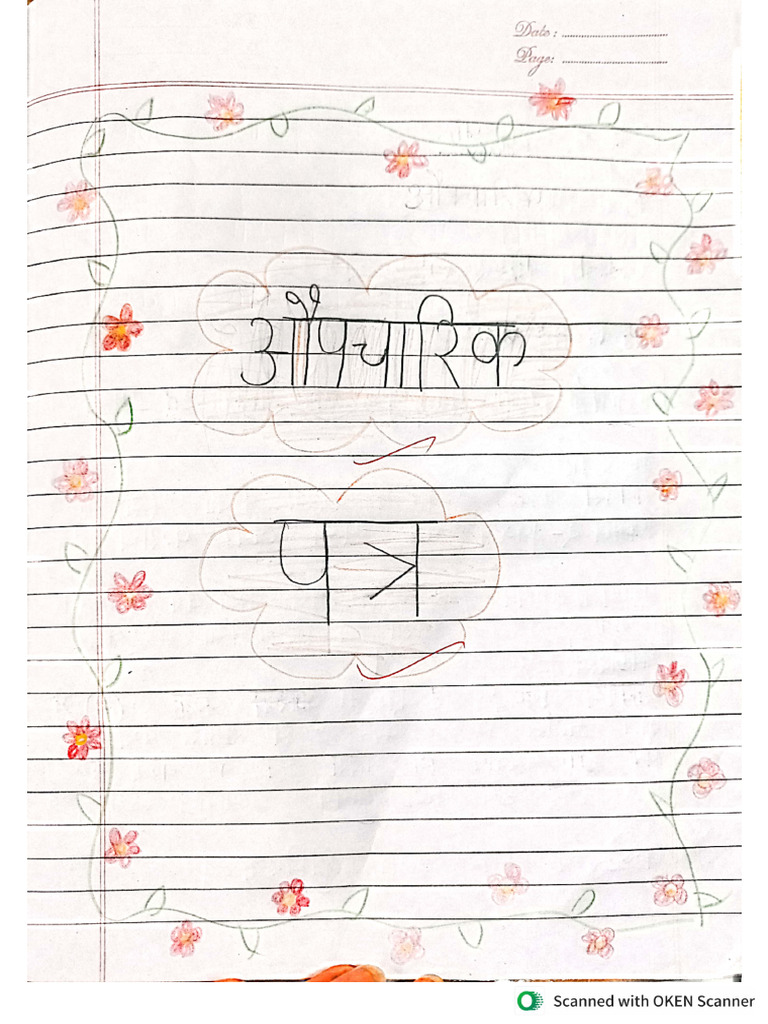 Date:
Page:
औपचारिक
पत्र
Scanned with OKEN Scanner